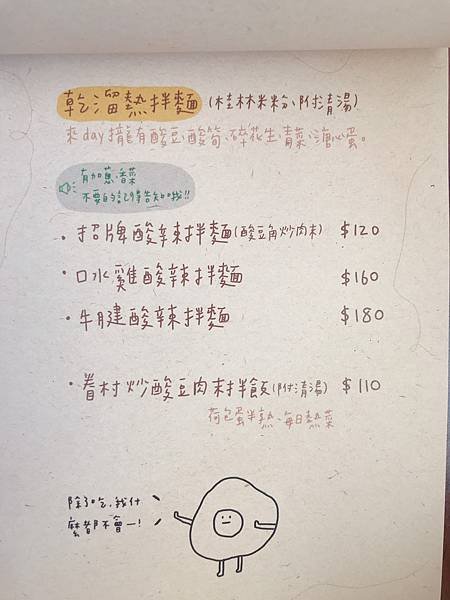 乾溜熱拌麵(桂林米粉、附清湯)
來day攏有酸豆、酸筍、碎花生、青菜、溏心蛋。
有加蔥、香菜
不要的話記得告知哦!!
·招牌酸辣拌麵(酸豆角炒肉末) $120
·口水雞酸辣拌麵 $160
·牛腱酸辣拌麵 $180
·眷村炒酸豆肉末拌飯(附清湯) $110
荷包蛋半熟、每日熱菜
除了吃,我什
麼都不會一!